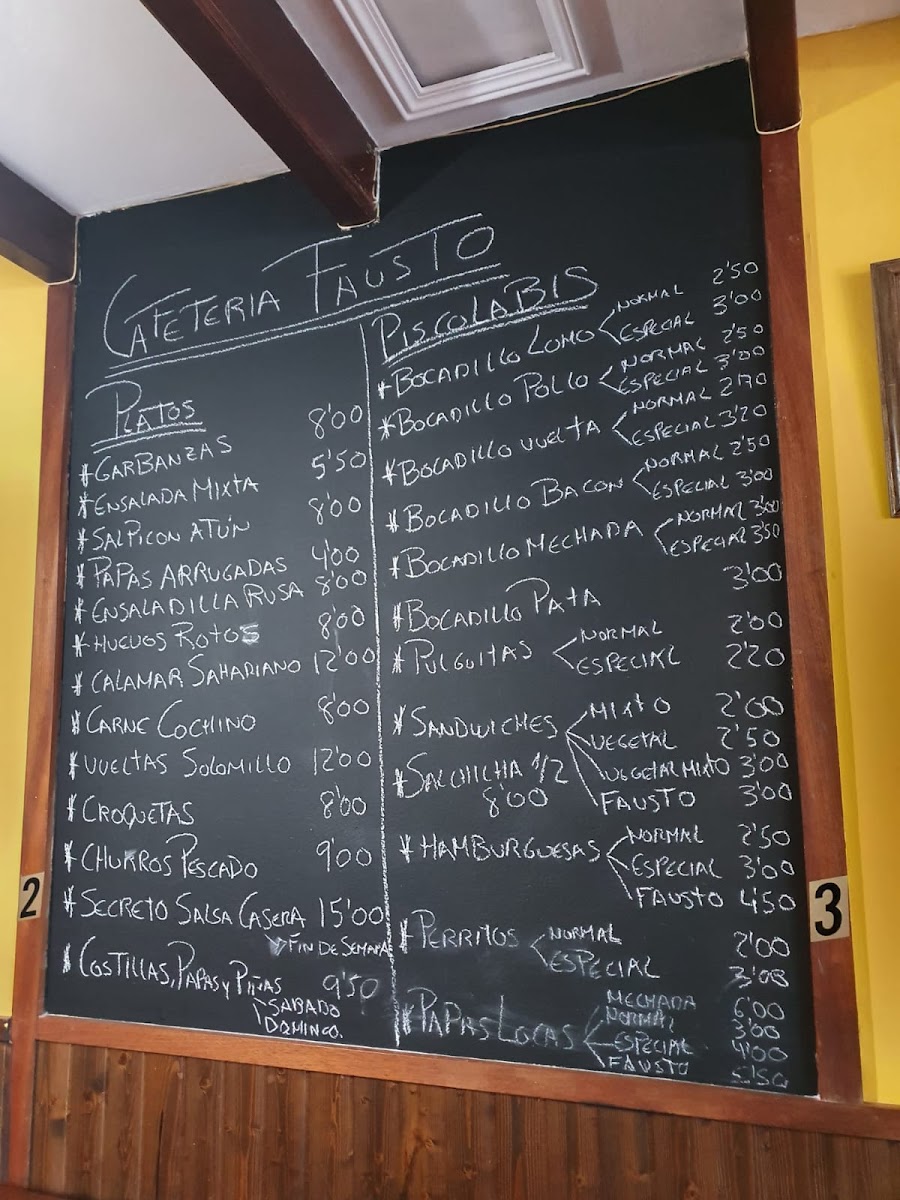 CAFETERIA FAUSTO
PLATOS
*GARBANZAS 8'00
*ENSALADA MIXTA 5'50
*SALPICON ATÚN 8'00
*PAPAS ARRUGADAS 4'00
*ENSALADILLA RUSA 8'00
*HUEVOS ROTOS 8'00
*CALAMAR SAHARIANO 12'00
*CARNE COCHINO 8'00
*VUELTAS SOLOMILLO 12'00
*CROQUETAS 8'00
*CHURROS PESCADO 9'00
*SECRETO SALSA CASERA 15'00
FIN DE SEMANA
*COSTILLAS, PAPAS Y PIÑAS 9'50
SABADO
DOMINGO.
PISCOLABIS
*BOCADILLO LOMO NORMAL 2'50
ESPECIAL 3'00
*BOCADILLO POLLO NORMAL 2'50
ESPECIAL 3'00
*BOCADILLO VUELTA NORMAL 2'70
ESPECIAL 3'20
*BOCADILLO BACON NORMAL 2'50
ESPECIAL 3'00
*BOCADILLO MECHADA NORMAL 3'00
ESPECIAL 3'50
*BOCADILLO PATA 3'00
*PULGUITAS NORMAL 2'00
ESPECIAL 2'20
*SANDWICHES MIXTO 2'00
VEGETAL 2'50
VEGETAL MIXTO 3'00
FAUSTO 3'00
*SALCHICHA 1/2
8'00
*HAMBURGUESAS NORMAL 2'50
ESPECIAL 3'00
FAUSTO 4'50
*PERRITOS NORMAL 2'00
ESPECIAL 3'00
*PAPAS LOCAS MECHADA 6'00
NORMAL 3'00
ESPECIAL 4'00
FAUSTO 5'50
2
3